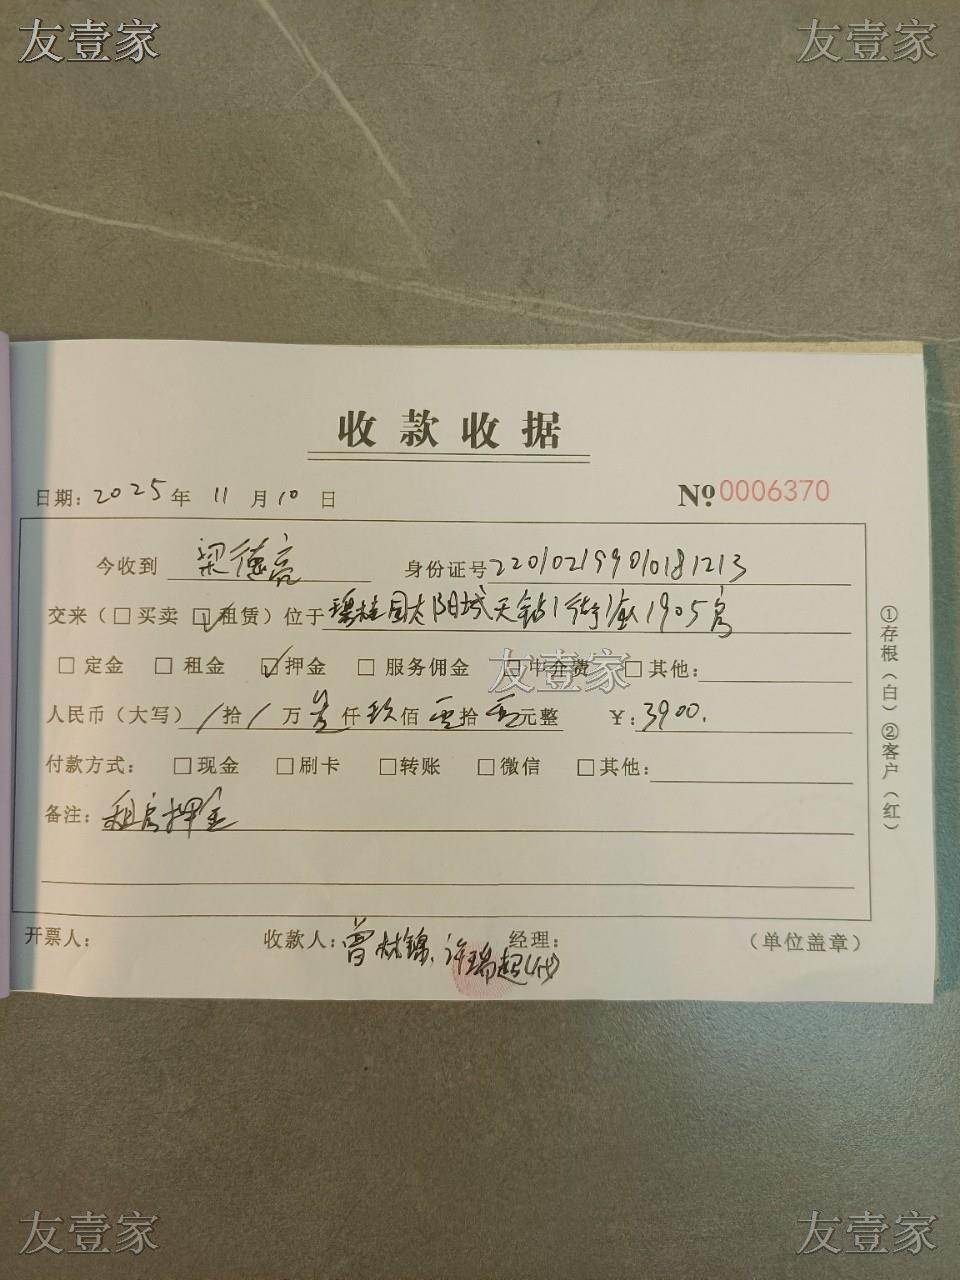 友壹家 友壹家
收款收据
日期：2025年 11月10日 №0006370
今收到 梁德亮 身份证号220102199010181213
交来（□买卖 ☑租赁）位于碧桂园太阳城天钻1街1座1905房
□定金 □租金 ☑押金 □服务佣金 □中介费 □其他：
友壹家
人民币（大写）/拾/万叁仟玖佰零拾零元整 ￥：3900.
付款方式： □现金 □刷卡 □转账 □微信 □其他：
备注：租房押金
①存根（白）②客户（红）
开票人： 收款人：曾林锦、许瑞超(代) 经理： （单位盖章）
友壹家 友壹家